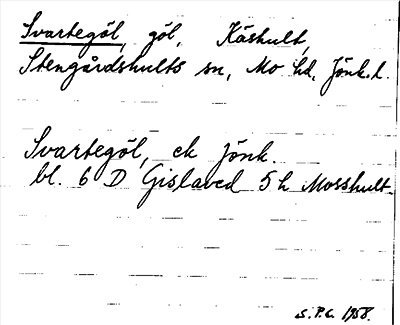 Svartegöl, göl, Kåshult,
Stengårdshults sn, Mo hd, Jönk.l.
Svartegöl, ek Jönk.
bl. 6 D Gislaved 5 h Mosshult.
S.P.C. 1958.